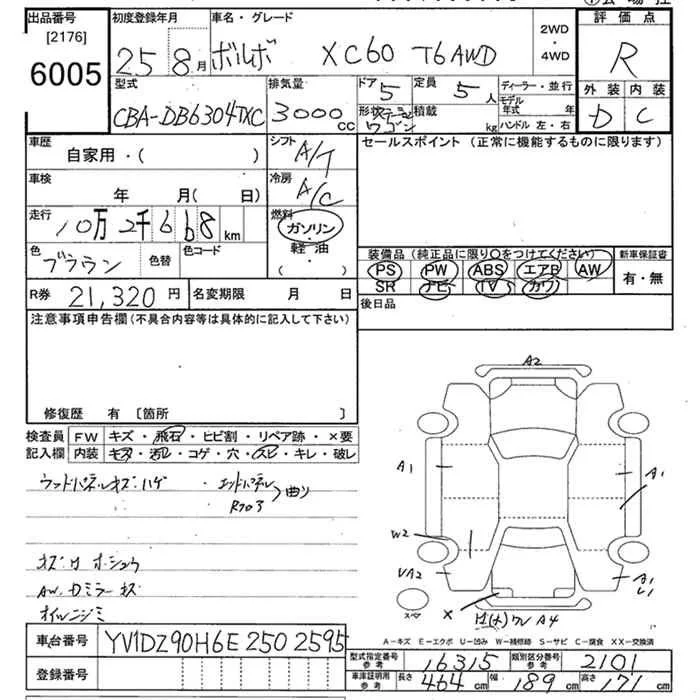 出品番号 初度登録年月 車名・グレード 2WD・4WD 評価点
[2176]
6005 25 8月 ボルボ XC60 T6AWD R
型式 排気量 ドア 5 定員 5人 ディーラー・並行 外装 内装
CBA-DB6304TXC 3000cc 形状 ステーションワゴン 積載 kg モデル年式 年 D C
ハンドル 左・右
車歴 シフト A/T セールスポイント (正常に機能するものに限ります)
自家用・( )
車検 冷房 A/C
年 月(日)
走行 10万2千668km 燃料 ガソリン・軽油・( )
色 ブラウン 色替 色コード 装備品(純正品に限り○をつけてください) 新車保証書
PS PW ABS エアB AW 有・無
R券 21,320円 名変期限 月 日 SR ナビ TV カワ
後日品
注意事項申告欄(不具合内容等は具体的に記入して下さい)
修復歴 有〔箇所 〕
検査員 FW キズ・飛石・ヒビ割・リペア跡・×要
記入欄 内装 キズ・汚レ・コゲ・穴・スレ・キレ・破レ
ウッドパネルキズ・ハゲ
曲り
AW.Dミラーキズ
オイルニジミ
A2
A1 A1
W2
A1
X A4
A-キズ E-エクボ U-凹み W-補修跡 S-サビ C-腐食 XX-交換済
車台番号 YV1DZ90H6E2502595
登録番号
型式指定番号 参考 16315 類別区分番号 参考 2101
車庫証明用 参考 長さ 464cm 幅 189cm 高さ 171cm